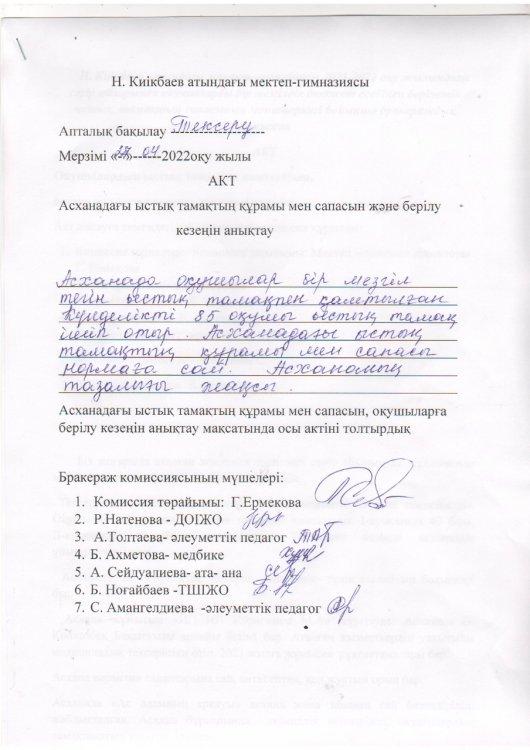 Н. Киікбаев атындағы мектеп-гимназиясы
Апталық бақылау Тексеру
Мерзімі «27» 04 2022оқу жылы
АКТ
Асханадағы ыстық тамақтың құрамы мен сапасын және берілу
кезеңін анықтау
Асханада оқушылар бір мезгіл
тегін ыстық тамақпен қамтылған
Күнделікті 85 оқушы ыстық тамақ
ішіп отыр. Асханадағы ыстық
тамақтың құрамы мен сапасы
нормаға сай. Асхананың
тазалығы жақсы.
Асханадағы ыстық тамақтың құрамы мен сапасын, оқушыларға
берілу кезеңін анықтау мақсатында осы актіні толтырдық
Бракераж комиссиясының мүшелері:
1. Комиссия төрайымы: Г.Ермекова
2. Р.Натенова - ДОІЖО
3. А.Толтаева- әлеуметтік педагог
4. Б. Ахметова- медбике
5. А. Сейдуалиева- ата- ана
6. Б. Ноғайбаев -ТШІЖО
7. С. Амангелдиева -әлеуметтік педагог